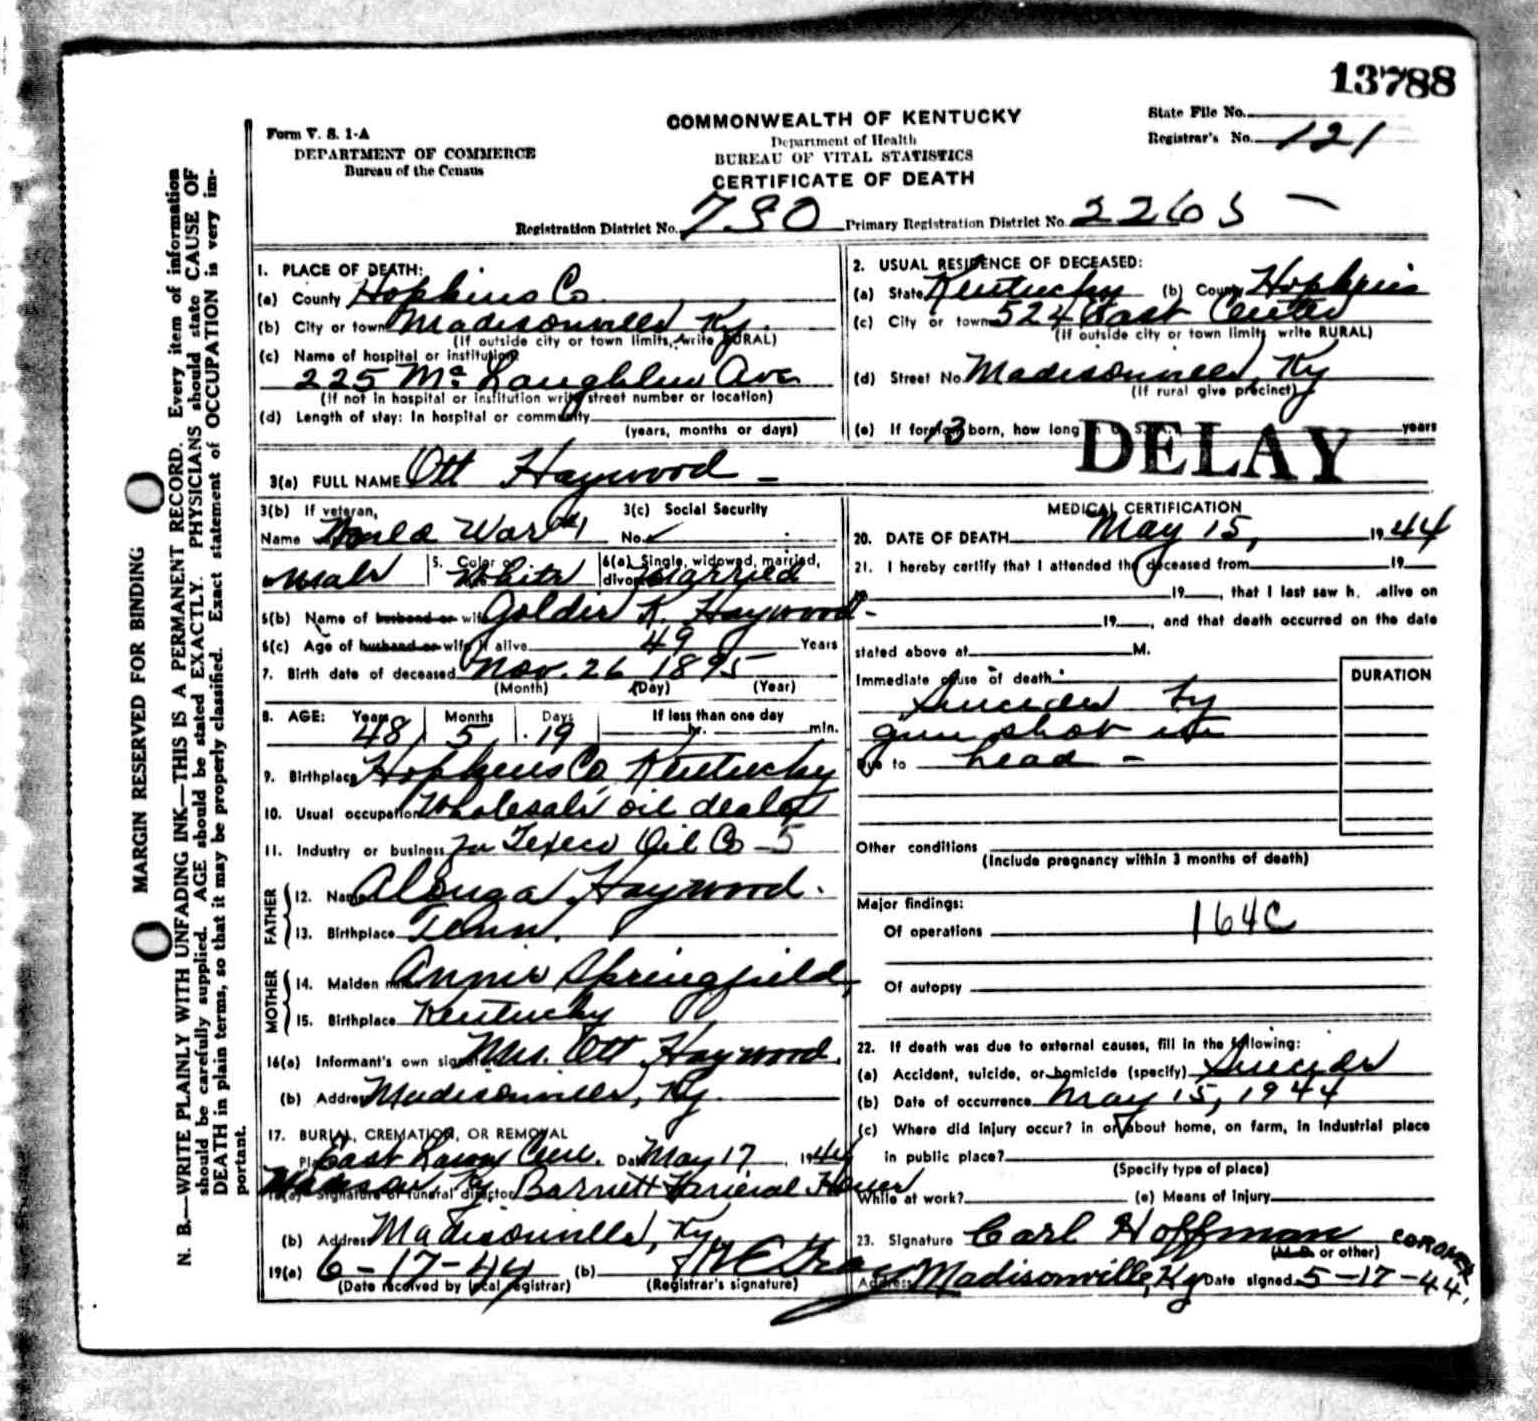 13788
Form V. S. 1-A
DEPARTMENT OF COMMERCE
Bureau of the Census
COMMONWEALTH OF KENTUCKY
Department of Health
BUREAU OF VITAL STATISTICS
CERTIFICATE OF DEATH
State File No.
Registrar's No. 121
Registration District No. 730 Primary Registration District No. 2265 -
MARGIN RESERVED FOR BINDING
N. B.—WRITE PLAINLY WITH UNFADING INK—THIS IS A PERMANENT RECORD. Every item of information
should be carefully supplied. AGE should be stated EXACTLY. PHYSICIANS should state CAUSE OF
DEATH in plain terms, so that it may be properly classified. Exact statement of OCCUPATION is very im-
portant.
1. PLACE OF DEATH:
(a) County Hopkins Co
(b) City or town Madisonville, Ky.
(If outside city or town limits, write RURAL)
(c) Name of hospital or institution:
225 Mc Laughlin Ave
(If not in hospital or institution write street number or location)
(d) Length of stay: In hospital or community
(years, months or days)
2. USUAL RESIDENCE OF DECEASED:
(a) State Kentucky (b) County Hopkins
(c) City or town 524 East Center
(If outside city or town limits write RURAL)
(d) Street No. Madisonville, Ky
(If rural give precinct)
(e) If foreign born, how long in U. S. A. years
13
DELAY
3(a) FULL NAME Ott Haywood -
3(b) If veteran,
Name war World War #1
3(c) Social Security
No.
Male
5. Color or White
6(a) Single, widowed, married,
divorced Married
6(b) Name of husband or wife Goldie K. Haywood -
6(c) Age of husband or wife if alive 49 Years
7. Birth date of deceased Nov. 26 1895
(Month) (Day) (Year)
8. AGE: Years 48 Months 5 Days 19 If less than one day
hr. min.
9. Birthplace Hopkins Co Kentucky
10. Usual occupation Wholesale oil dealer
11. Industry or business for Texeco Oil Co - 5
FATHER
12. Name Alonza Haywood.
13. Birthplace Tenn.
MOTHER
14. Maiden name Annie Springfield,
15. Birthplace Kentucky
16(a) Informant's own signature Mrs. Ott Haywood.
(b) Address Madisonville, Ky.
17. BURIAL, CREMATION, OR REMOVAL
Place East Lawn Cem. Date May 17, 1944
18(a) Signature of funeral director Barnett Funeral Home
(b) Address Madisonville, Ky
19(a) 6-17-44 (b)
(Date received by local registrar) (Registrar's signature)
MEDICAL CERTIFICATION
20. DATE OF DEATH May 15, 1944
21. I hereby certify that I attended the deceased from 19
19, that I last saw h. alive on
19, and that death occurred on the date
stated above at M.
Immediate cause of death
DURATION
Suicide by
gun shot in
Due to head -
Other conditions
(Include pregnancy within 3 months of death)
Major findings:
Of operations 164C
Of autopsy
22. If death was due to external causes, fill in the following:
(a) Accident, suicide, or homicide (specify) Suicide
(b) Date of occurrence May 15, 1944
(c) Where did injury occur? in or about home, on farm, in industrial place
in public place?
(Specify type of place)
While at work? (e) Means of Injury
23. Signature Carl Hoffman CORONER
(M.D. or other)
Address Madisonville, Ky Date signed 5-17-44.